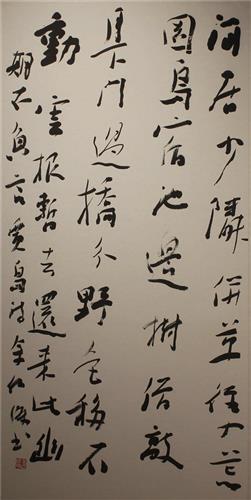 闲居少隣併草径入荒
園鳥宿池邊樹僧敲
月下门過橋分野色移石
動雲根暫去還来此幽
期不負言賈島詩